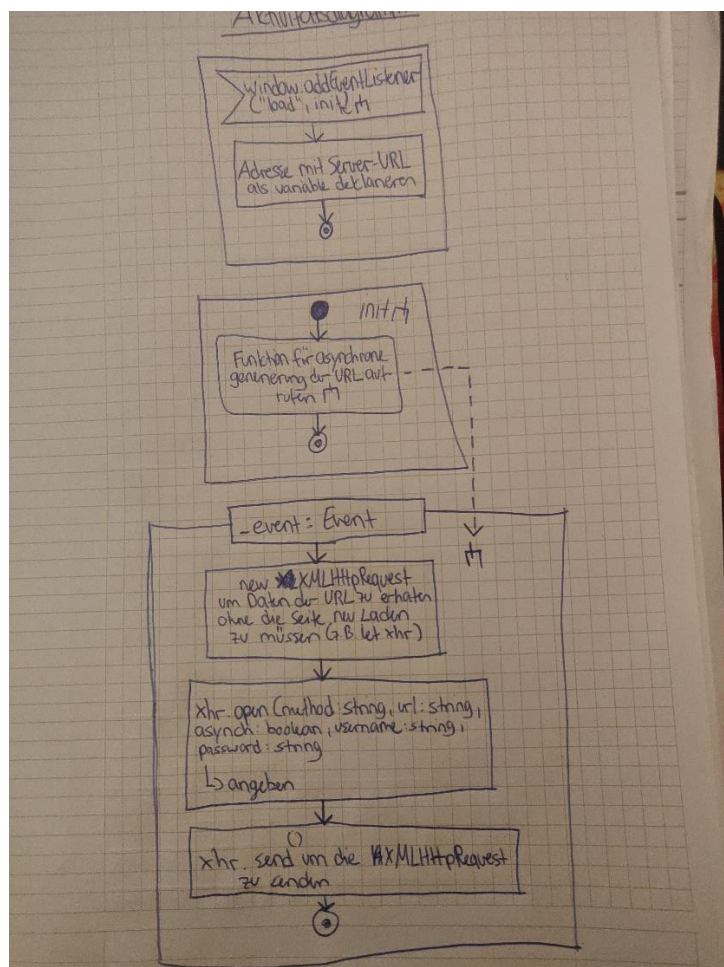 Aktivitätsdiagramm
window.addEventListener
("load", init)
Adresse mit Server-URL
als variable deklarieren
init
Funktion für asynchrone
generierung der URL auf-
rufen
_event: Event
new XMLHttpRequest
um Daten der URL zu erhalten
ohne die Seite neu Laden
zu müssen (z.B. let xhr)
xhr.open (method: string, url: string,
asynch: boolean, username: string,
password: string
↳ angeben
xhr.send() um die XMLHttpRequest
zu senden